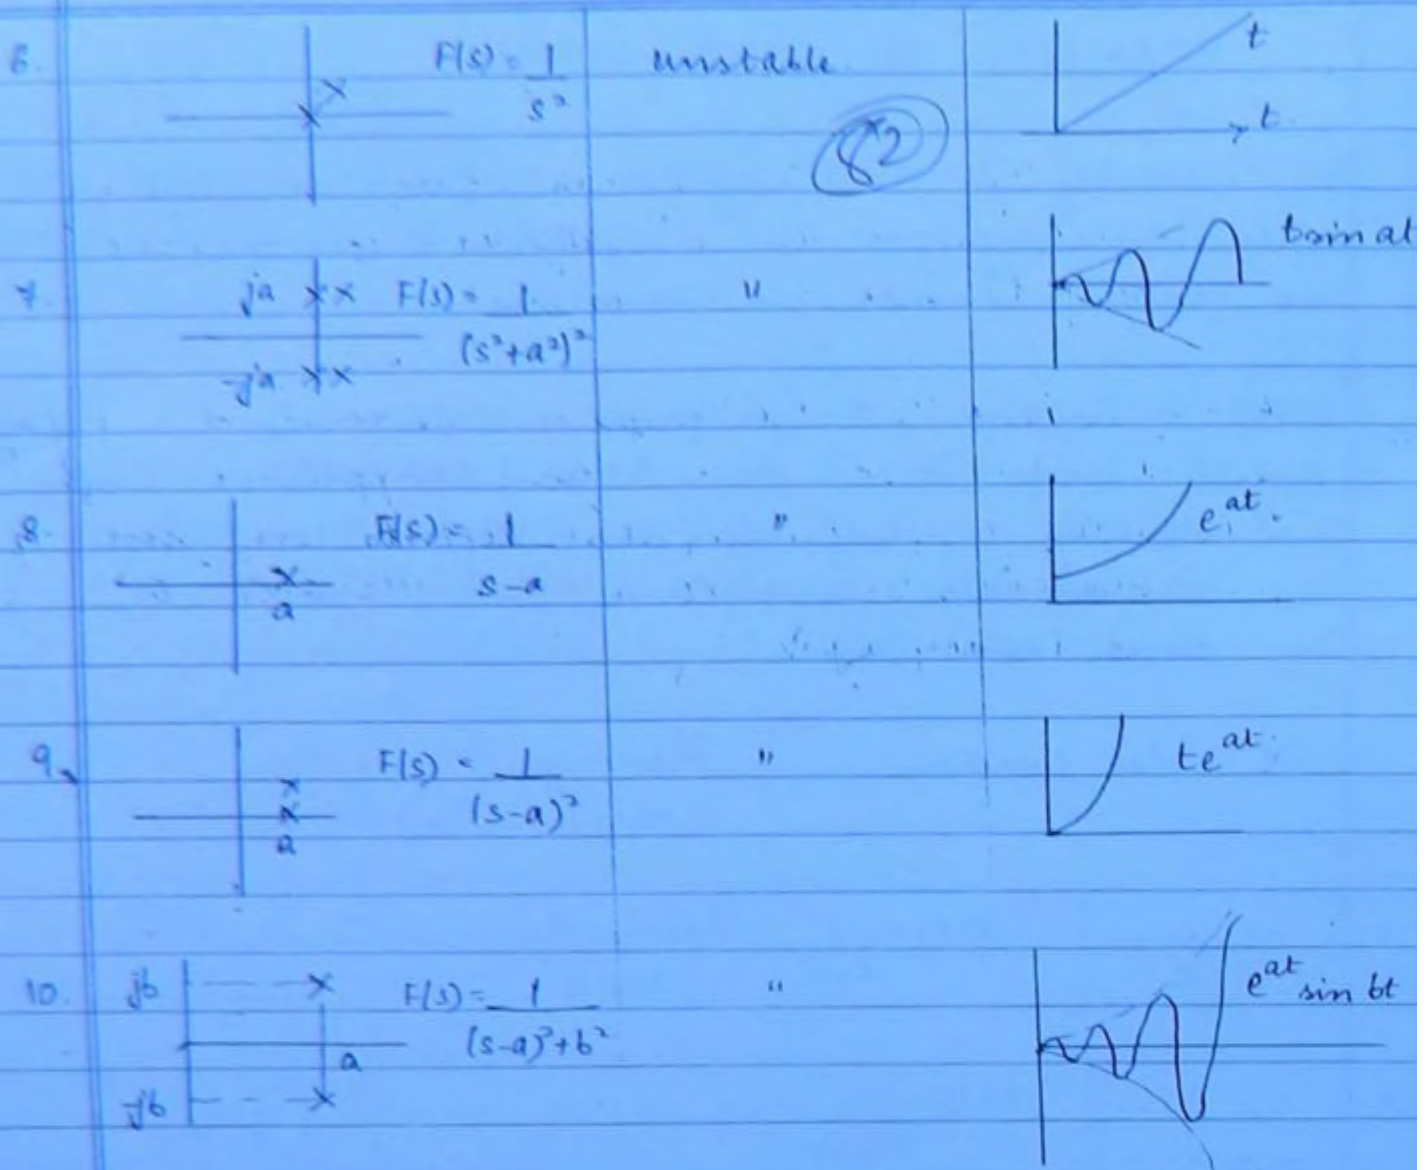 6. F(s) = 1/s² unstable t
t
82
7. ja F(s) = 1/(s²+a²)² " t sin at
-ja
8. F(s) = 1/(s-a) " e^at.
a
9. F(s) = 1/(s-a)² " te^at
a
10. jb F(s) = 1/((s-a)²+b²) " e^at sin bt
a
-jb